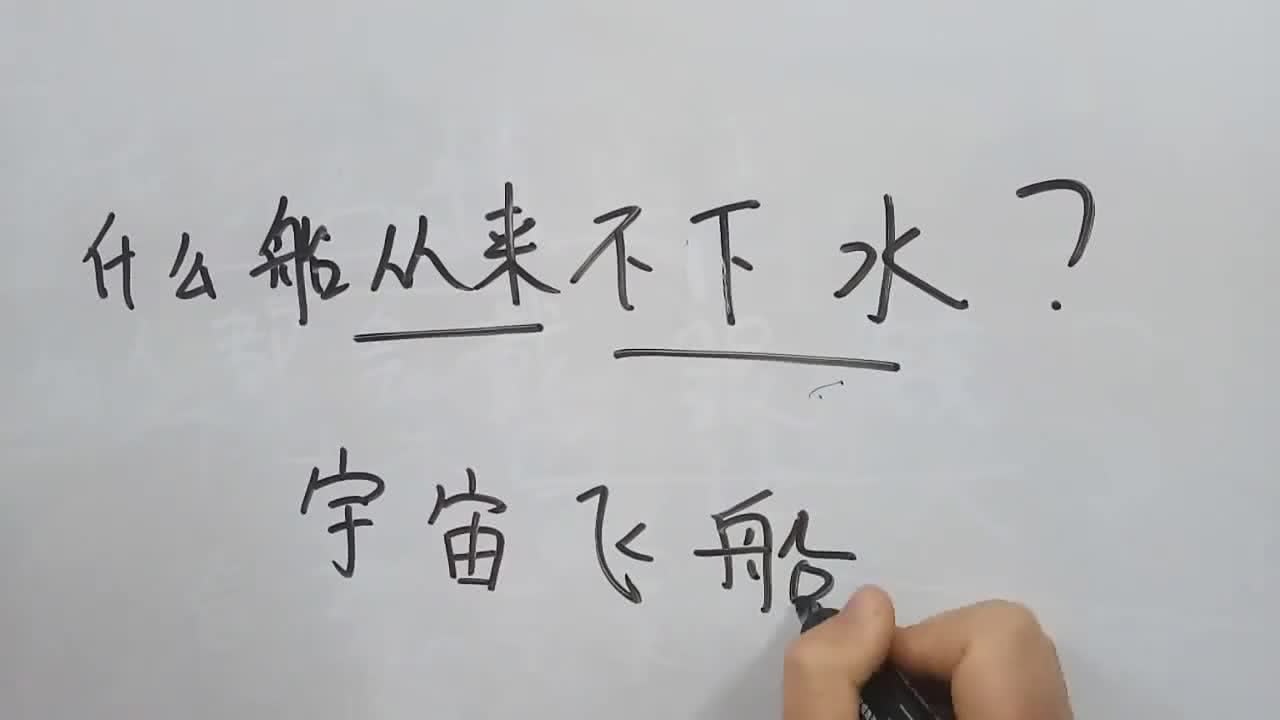 什么船从来不下水?
宇宙飞船